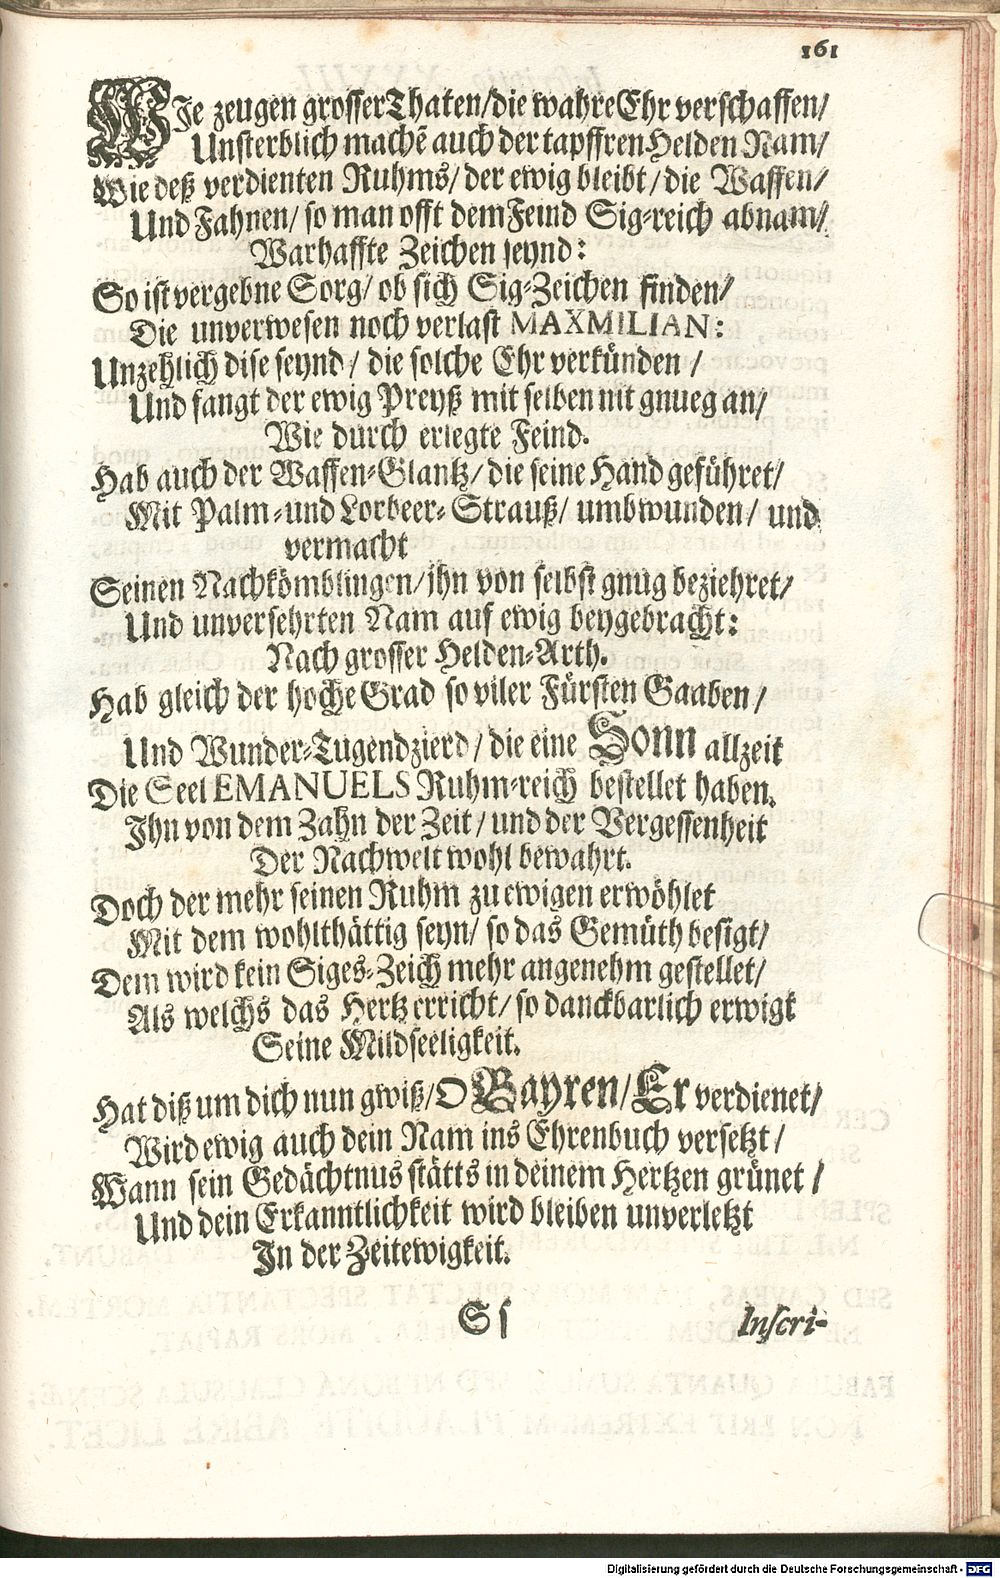 161
WJe zeugen grosser Thaten/ die wahre Ehr verschaffen/
Unsterblich machẽ auch der tapffren Helden Nam/
Wie deß verdienten Ruhms/ der ewig bleibt/ die Waffen/
Und Fahnen/ so man offt dem Feind Sig-reich abnam/
Warhaffte Zeichen seynd:
So ist vergebne Sorg/ ob sich Sig-Zeichen finden/
Die unverwesen noch verlast MAXMILIAN:
Unzehlich dise seynd/ die solche Ehr verkünden/
Und fangt der ewig Preyß mit selben nit gnueg an/
Wie durch erlegte Feind.
Hab auch der Waffen-Glantz/ die seine Hand geführet/
Mit Palm- und Lorbeer-Strauß/ umbwunden/ und
vermacht
Seinen Nachkömblingen/ ihn von selbst gnug beziehret/
Und unversehrten Nam auf ewig beygebracht:
Nach grosser Helden-Arth.
Hab gleich der hoche Grad so viler Fürsten Gaaben/
Und Wunder-Tugendzierd/ die eine Sonn allzeit
Die Seel EMANUELS Ruhm-reich bestellet haben.
Ihn von dem Zahn der Zeit/ und der Vergessenheit
Der Nachwelt wohl bewahrt.
Doch der mehr seinen Ruhm zu ewigen erwöhlet
Mit dem wohlthättig seyn/ so das Gemüth besigt/
Dem wird kein Siges-Zeich mehr angenehm gestellet/
Als welchs das Hertz erricht/ so danckbarlich erwigt
Seine Mildseeligkeit.
Hat diß um dich nun gwiß/ O Bayren/ Er verdienet/
Wird ewig auch dein Nam ins Ehrenbuch versetzt/
Wann sein Gedächtnus stätts in deinem Hertzen grünet/
Und dein Erkanntlichkeit wird bleiben unverletzt
In der Zeitewigkeit.
S s
Inscri-
Digitalisierung gefördert durch die Deutsche Forschungsgemeinschaft - DFG